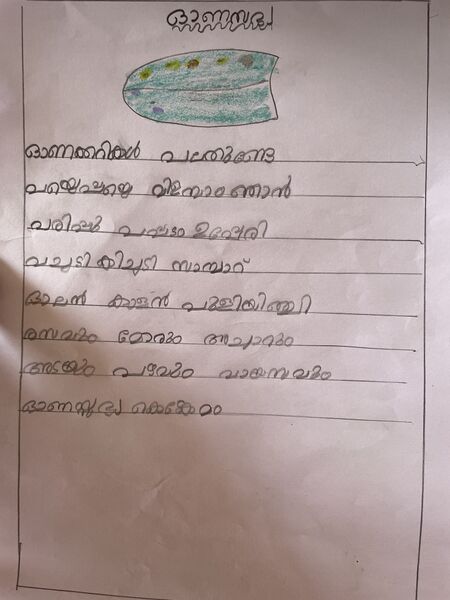 ഓണസദ്യ
ഓണക്കറികൾ പലതുണ്ടേ
പയ്യെപ്പയ്യെ വിളമ്പാം ഞാൻ
പരിപ്പും പപ്പടം ഉപ്പേരി
പച്ചടി കിച്ചടി സാമ്പാറ്
ഓലൻ കാളൻ പുളിയിഞ്ചി
രസവും മോരും അച്ചാറും
അടയും പഴവും പായസവും
ഓണസദ്യ കെങ്കേമം